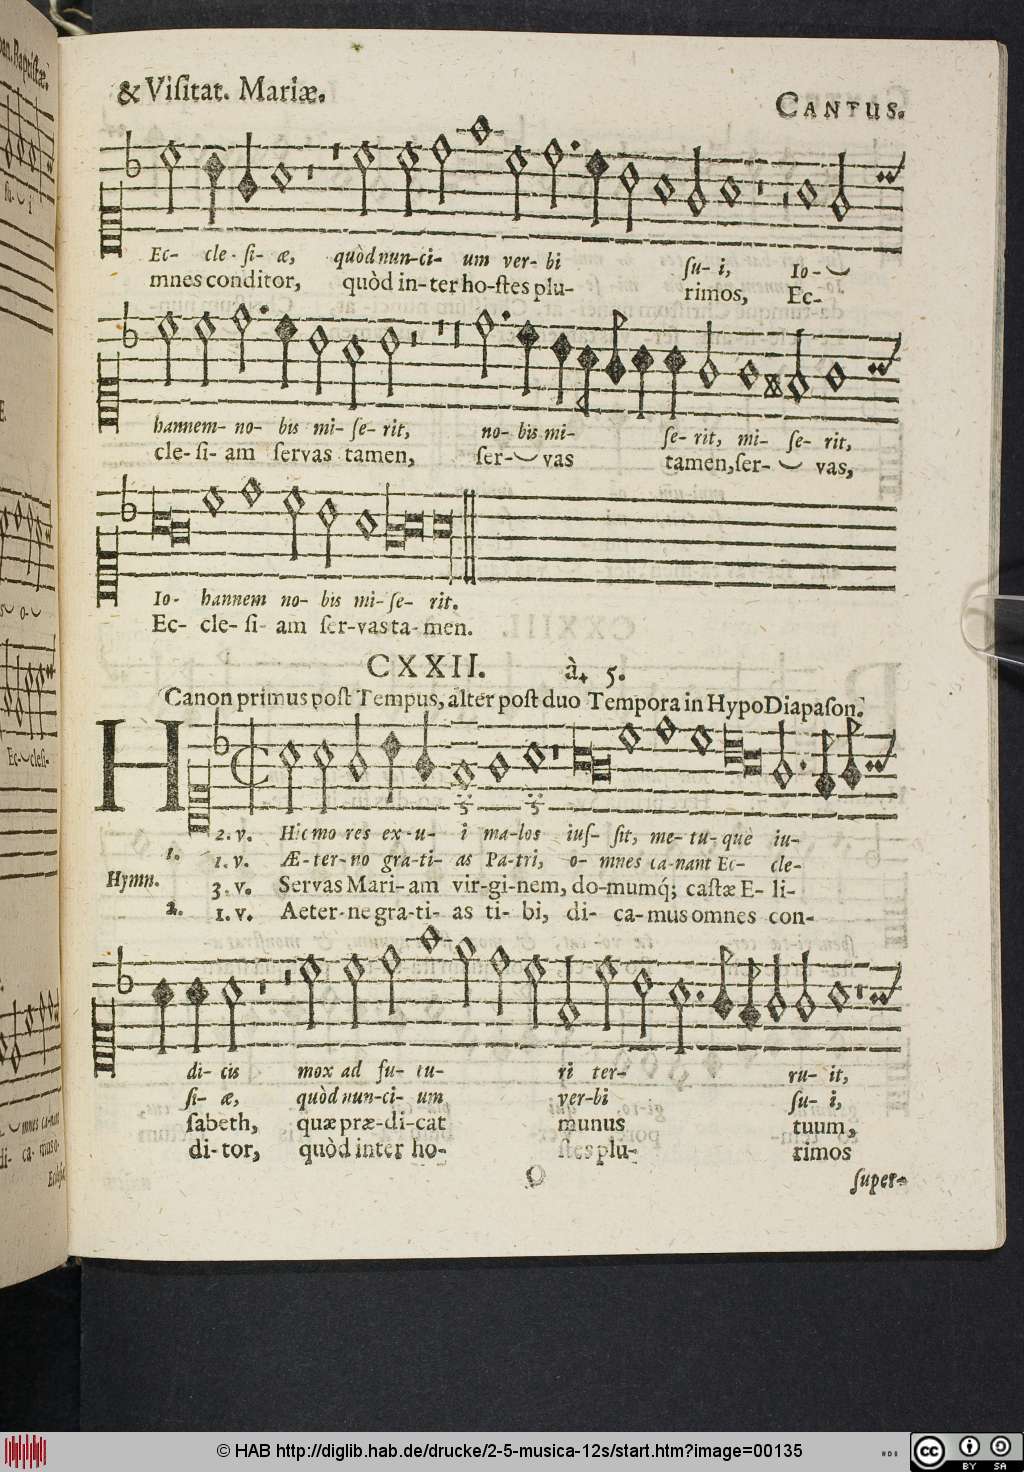 & Viſitat. Mariæ.
CANTUS.
Ec- cle-ſi- æ, quòd nun-ci- um ver-bi ſu-i, Io-
mnes conditor, quòd in-ter ho-ſtes plu- rimos, Ec-
hannem- no- bis mi- ſe- rit, no- bis mi- ſe- rit, mi- ſe- rit,
cle-ſi- am ſervas tamen, ſer- vas tamen, ſer- vas,
Io- hannem no- bis mi- ſe- rit.
Ec- cle- ſi- am ſer-vas ta-men.
CXXII. à. 5.
Canon primus poſt Tempus, alter poſt duo Tempora in HypoDiapaſon.
H
2. v. Hic mo res ex-u- i ma-los iuſ- ſit, me- tu- què iu-
1. 1. v. Æ-ter-no gra-ti- as Pa-tri, o- mnes ca-nant Ec- cle-
Hymn. 3. v. Servas Mari- am vir-gi-nem, do-mumq́; caſtæ E- li-
2. 1. v. Aeter-ne gra-ti- as ti- bi, di- ca-mus omnes con-
di- cis mox ad fu- tu- ri ter- ru- it,
ſi- æ, quòd nun-ci- um ver-bi ſu- i,
ſabeth, quæ præ-di-cat munus tuum,
di-tor, quòd inter ho- ſtes plu- rimos
ſuper-
© HAB http://diglib.hab.de/drucke/2-5-musica-12s/start.htm?image=00135